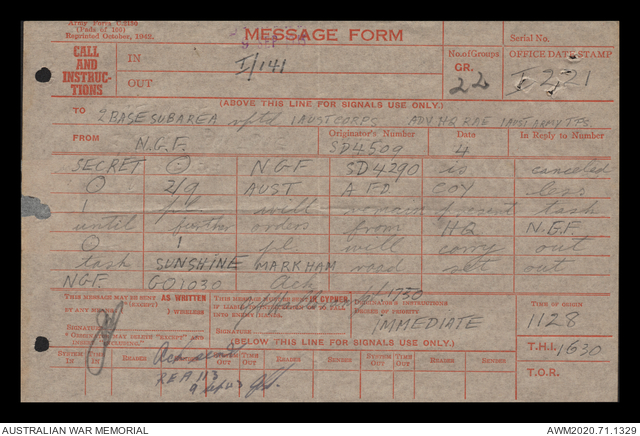 Army Form C.2136
(Pads of 100)
Reprinted October, 1942.
MESSAGE FORM
9 SEP
Serial No.
CALL
AND
INSTRUC-
TIONS
IN
I/141
OUT
No. of Groups
GR.
22
OFFICE DATE STAMP
I 221
(ABOVE THIS LINE FOR SIGNALS USE ONLY.)
TO 2 BASE SUB AREA rptd 1 AUST CORPS ADV HQ RAE
FROM N.G.F.
Originator's Number
SD4509
Date
4
In Reply to Number
SECRET (-) NGF SD4290 is canceled
(.) 2/9 AUST A FD COY less
1 pl will remain present task
until further orders from HQ N.G.F.
(.) 1 pl. will carry out
task SUNSHINE MARKHAM road set out
NGF GO1030 Ack
THIS MESSAGE MAY BE SENT AS WRITTEN
(EXCEPT)
BY ANY MEANS WIRELESS
SIGNATURE
THIS MESSAGE MUST BE SENT IN CYPHER
IF LIABLE TO BE INTERCEPTED OR TO FALL
INTO ENEMY HANDS.
SIGNATURE
1730
ORIGINATOR'S INSTRUCTIONS
DEGREE OF PRIORITY
IMMEDIATE
TIME OF ORIGIN
1128
T.H.I. 1630
T.O.R.
(BELOW THIS LINE FOR SIGNALS USE ONLY.)
SYSTEM IN TIME IN READER SENDER SYSTEM OUT TIME OUT READER SENDER SYSTEM OUT TIME OUT READER SENDER
REA 113
AUSTRALIAN WAR MEMORIAL
AWM2020.71.1329